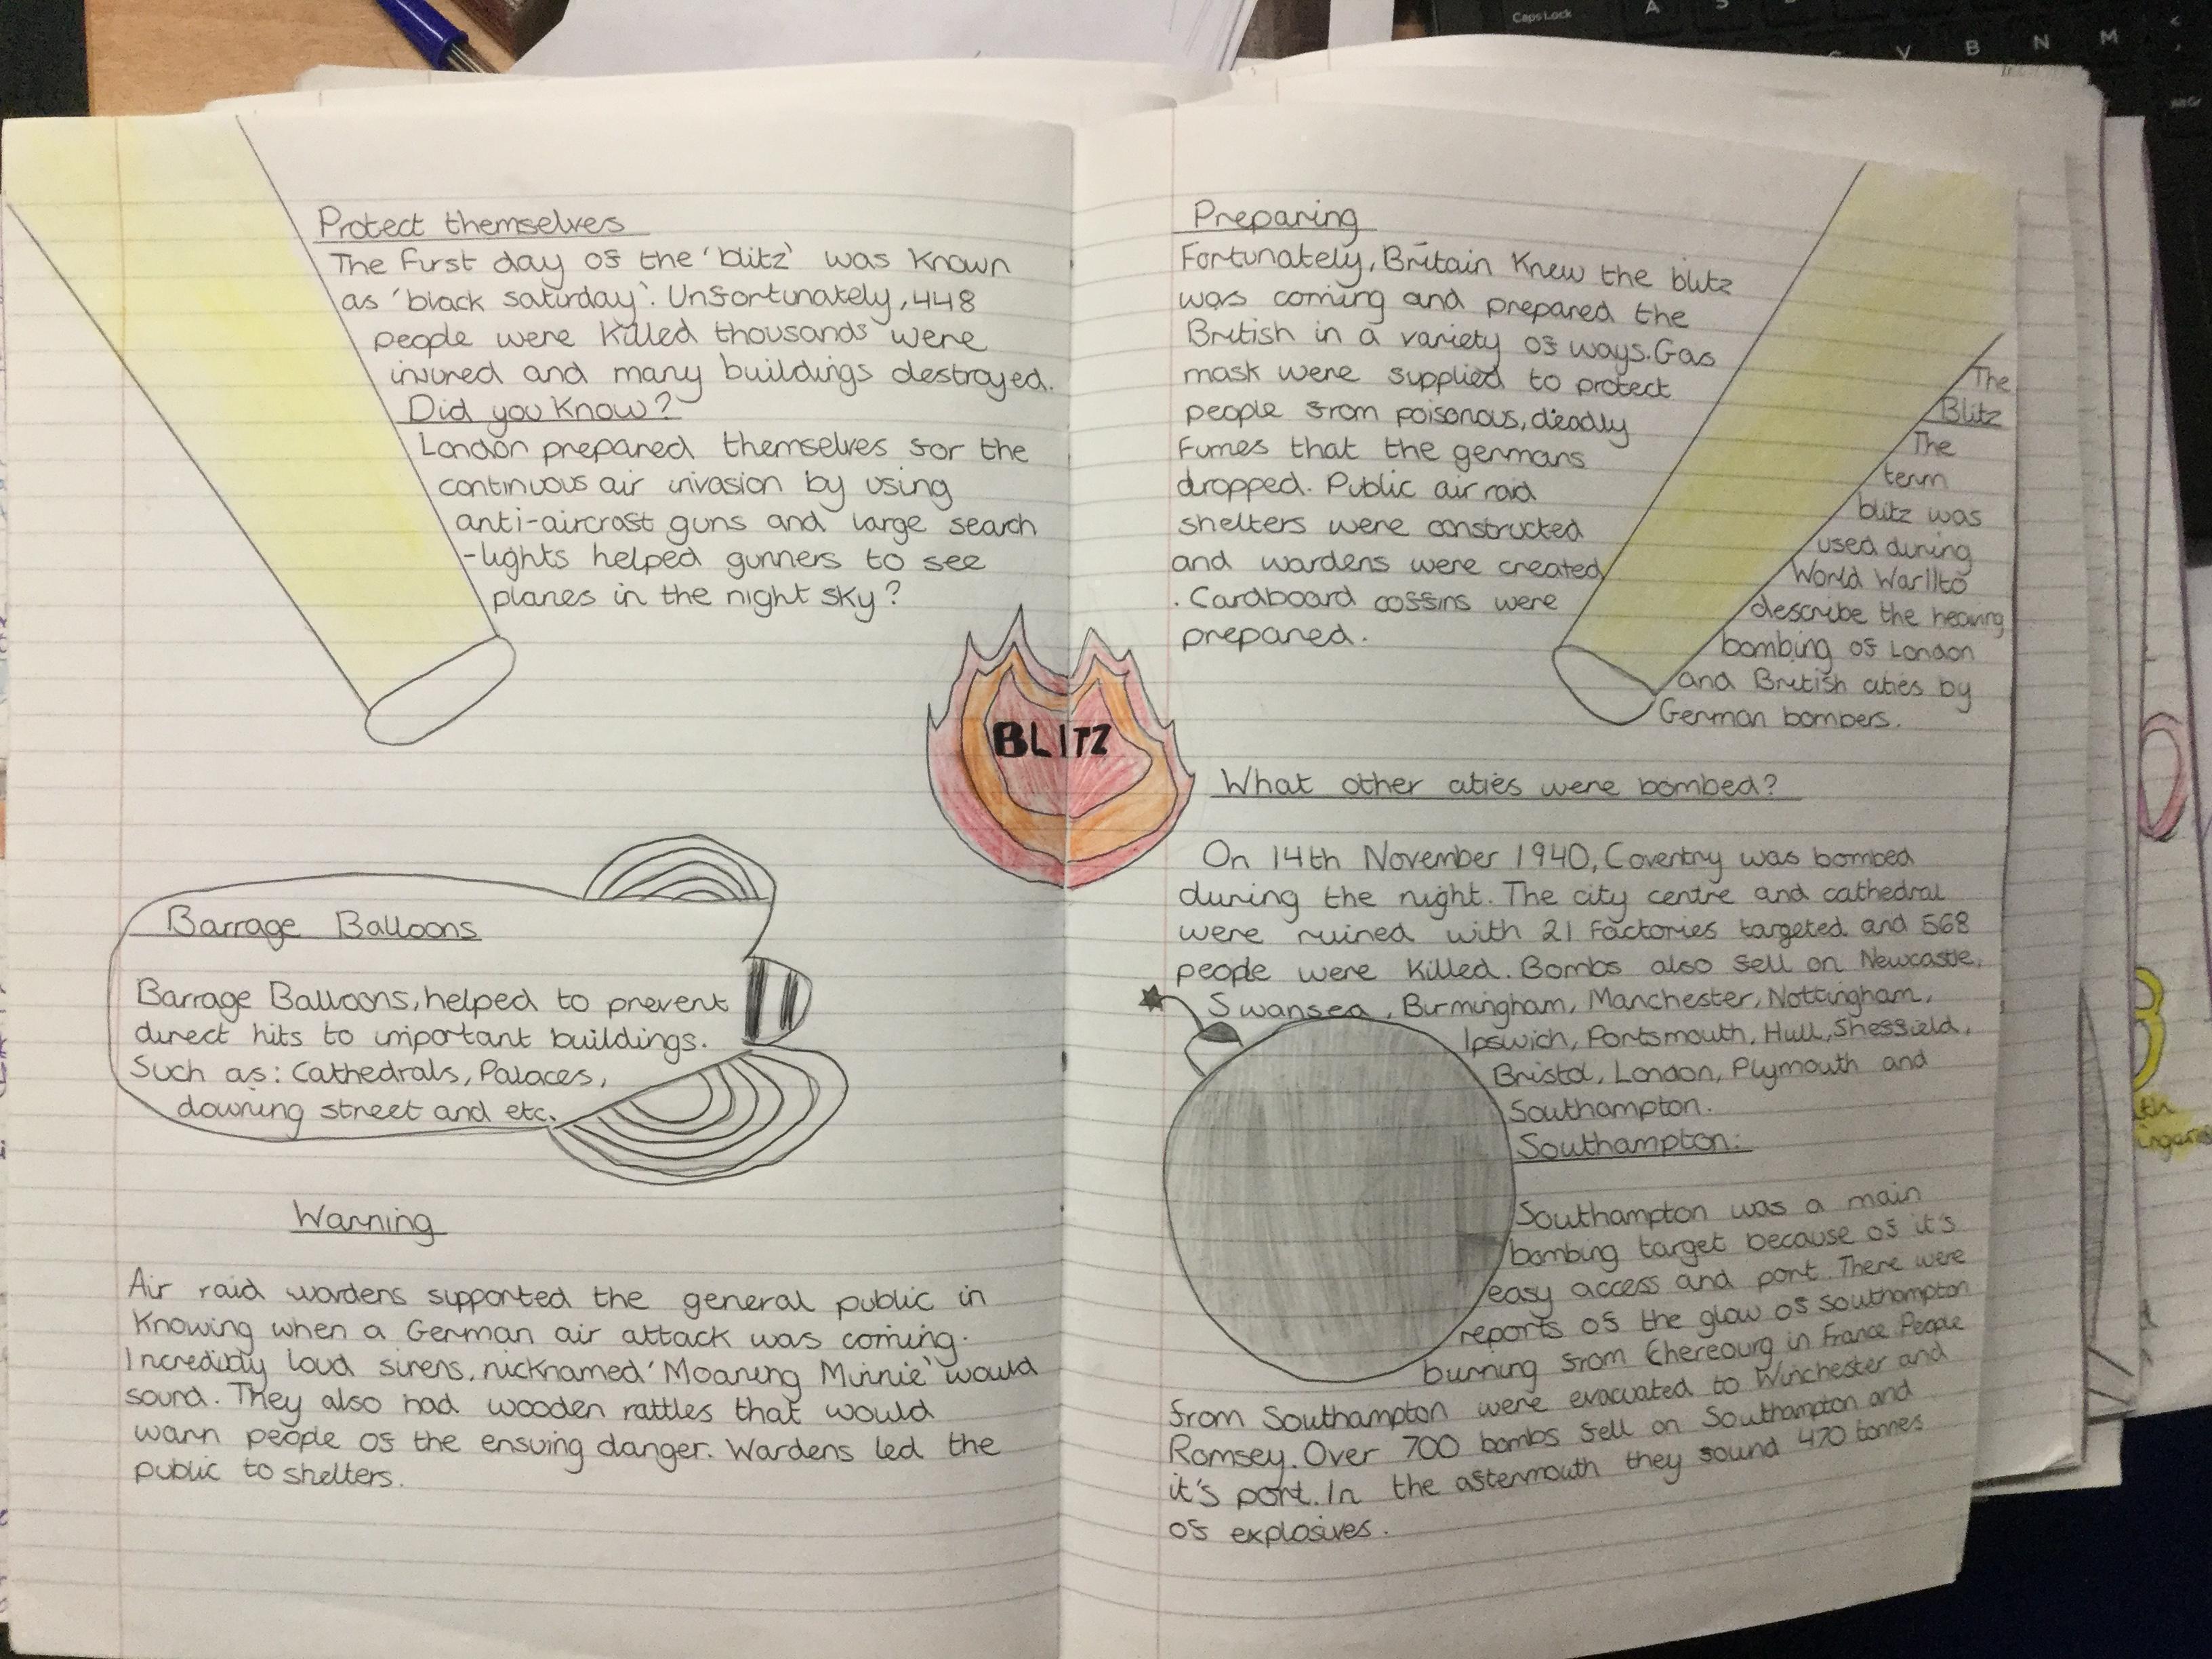 Protect themselves
The first day of the 'blitz' was known
as 'black saturday'. Unfortunately, 448
people were killed thousands were
injured and many buildings destroyed.
Did you know?
London prepared themselves for the
continuous air invasion by using
anti-aircraft guns and large search
-lights helped gunners to see
planes in the night sky?
Barrage Balloons
Barrage Balloons, helped to prevent
direct hits to important buildings.
Such as: Cathedrals, Palaces,
downing street and etc.
Warning
Air raid wardens supported the general public in
knowing when a German air attack was coming.
Incredibly loud sirens, nicknamed 'Moaning Minnie' would
sound. They also had wooden rattles that would
warn people of the ensuing danger. Wardens led the
public to shelters.
BLITZ
Preparing
Fortunately, Britain knew the blitz
was coming and prepared the
British in a variety of ways. Gas
mask were supplied to protect
people from poisonous, deadly
fumes that the germans
dropped. Public air raid
shelters were constructed
and wardens were created
. Cardboard coffins were
prepared.
The
Blitz
The
term
blitz was
used during
World War II to
describe the
bombing of London
and British cities by
German bombers.
What other cities were bombed?
On 14th November 1940, Coventry was bombed
during the night. The city centre and cathedral
were ruined with 21 factories targeted and 568
people were killed. Bombs also fell on Newcastle,
Swansea, Birmingham, Manchester, Nottingham,
Ipswich, Portsmouth, Hull, Sheffield,
Bristol, London, Plymouth and
Southampton.
Southampton:
Southampton was a main
bombing target because of it's
easy access and port. There were
reports of the glow of Southampton
burning from Chereourg in France People
from Southampton were evacuated to Winchester and
Romsey. Over 700 bombs fell on Southampton and
it's port. In the aftermouth they found 470 tonnes
of explosives.
Caps Lock
A
S
V
B
N
M